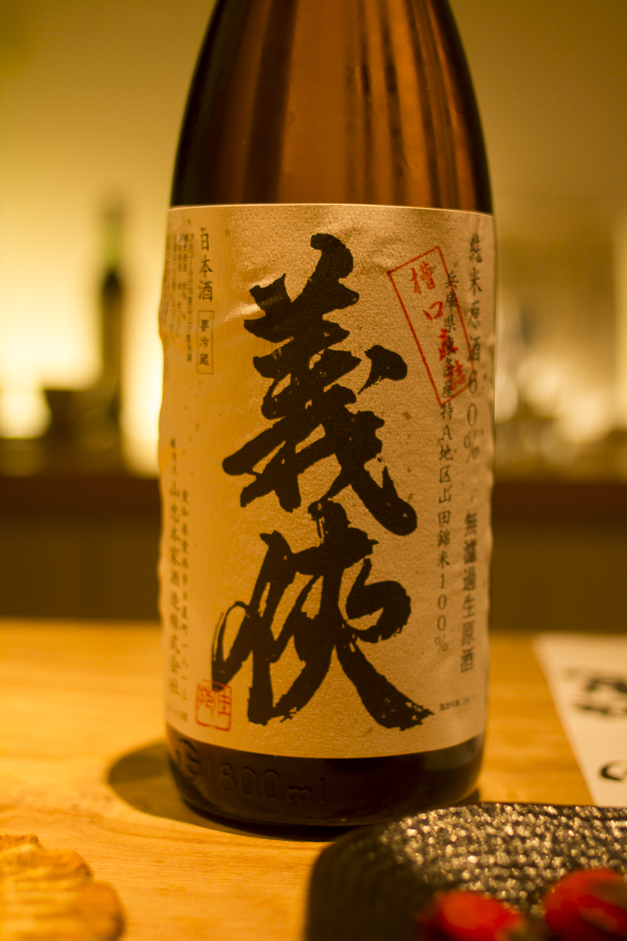 純米原酒60% 無濾過生原酒
兵庫県東条産特A地区山田錦米100%
槽口直詰
義侠
日本酒
要冷蔵
愛知県愛西市日置町一八一三
山忠本家酒造株式会社
1800ml